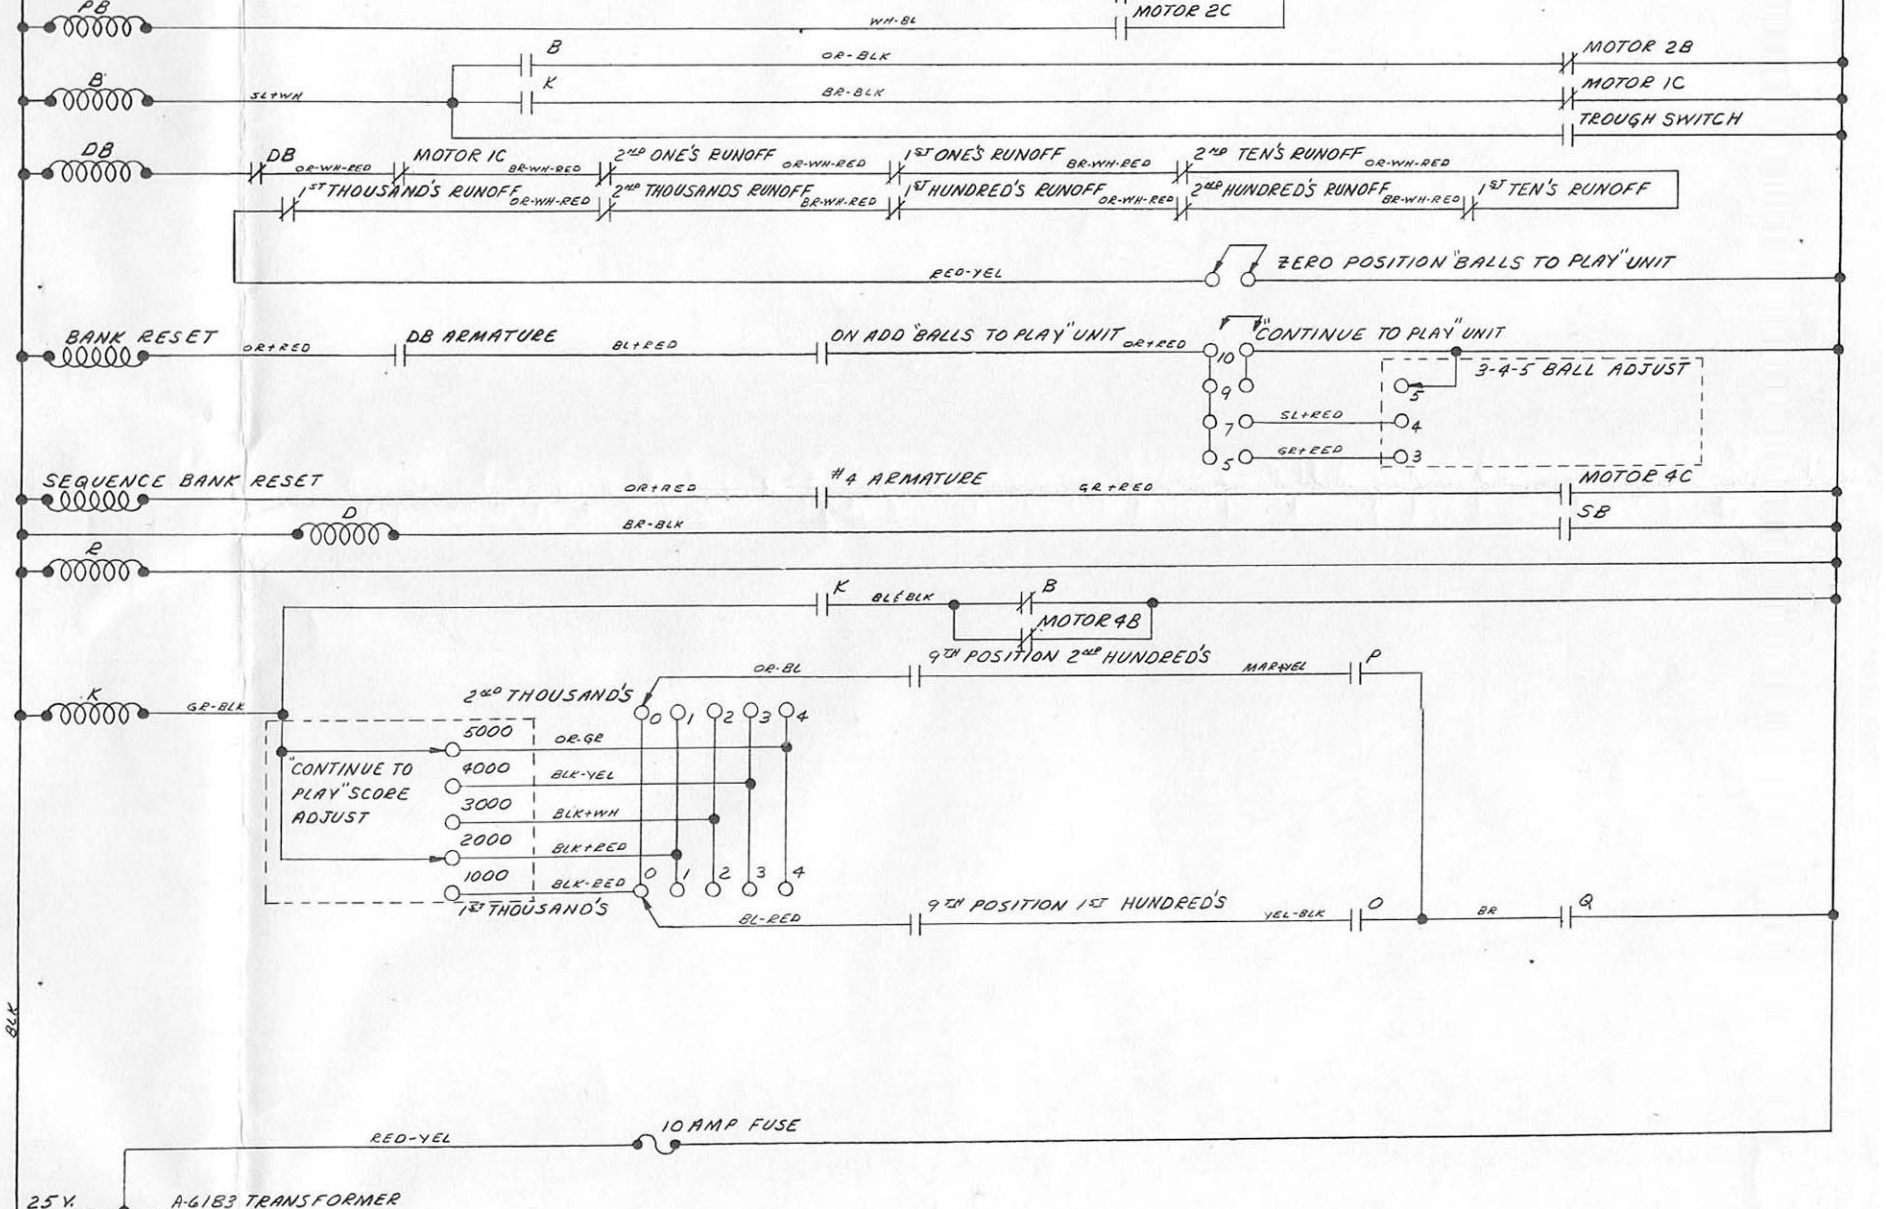 PB
WH-BL
MOTOR 2C
B
OR-BLK
MOTOR 2B
B
SL+WH
K
BR-BLK
MOTOR 1C
TROUGH SWITCH
DB
DB
OR-WH-RED
MOTOR 1C
BR-WH-RED
2ND ONE'S RUNOFF
OR-WH-RED
1ST ONE'S RUNOFF
BR-WH-RED
2ND TEN'S RUNOFF
OR-WH-RED
1ST THOUSAND'S RUNOFF
OR-WH-RED
2ND THOUSANDS RUNOFF
BR-WH-RED
1ST HUNDRED'S RUNOFF
OR-WH-RED
2ND HUNDRED'S RUNOFF
BR-WH-RED
1ST TEN'S RUNOFF
RED-YEL
ZERO POSITION "BALLS TO PLAY" UNIT
BANK RESET
OR+RED
DB ARMATURE
BL+RED
ON ADD "BALLS TO PLAY" UNIT
OR+RED
"CONTINUE TO PLAY" UNIT
10
3-4-5 BALL ADJUST
9
5
7
SL+RED
4
5
GR+RED
3
SEQUENCE BANK RESET
OR+RED
#4 ARMATURE
GR+RED
MOTOR 4C
D
BR-BLK
SB
R
K
BL&BLK
B
MOTOR 4B
OR-BL
9TH POSITION 2ND HUNDRED'S
MAR+YEL
P
K
GR-BLK
2ND THOUSAND'S
0 1 2 3 4
5000
OR-GR
"CONTINUE TO
PLAY" SCORE
ADJUST
4000
BLK-YEL
3000
BLK+WH
2000
BLK+RED
1000
BLK-RED
0 1 2 3 4
1ST THOUSAND'S
BL-RED
9TH POSITION 1ST HUNDRED'S
YEL-BLK
O
BR
Q
BLK
RED-YEL
10 AMP FUSE
25 V.
A-6183 TRANSFORMER